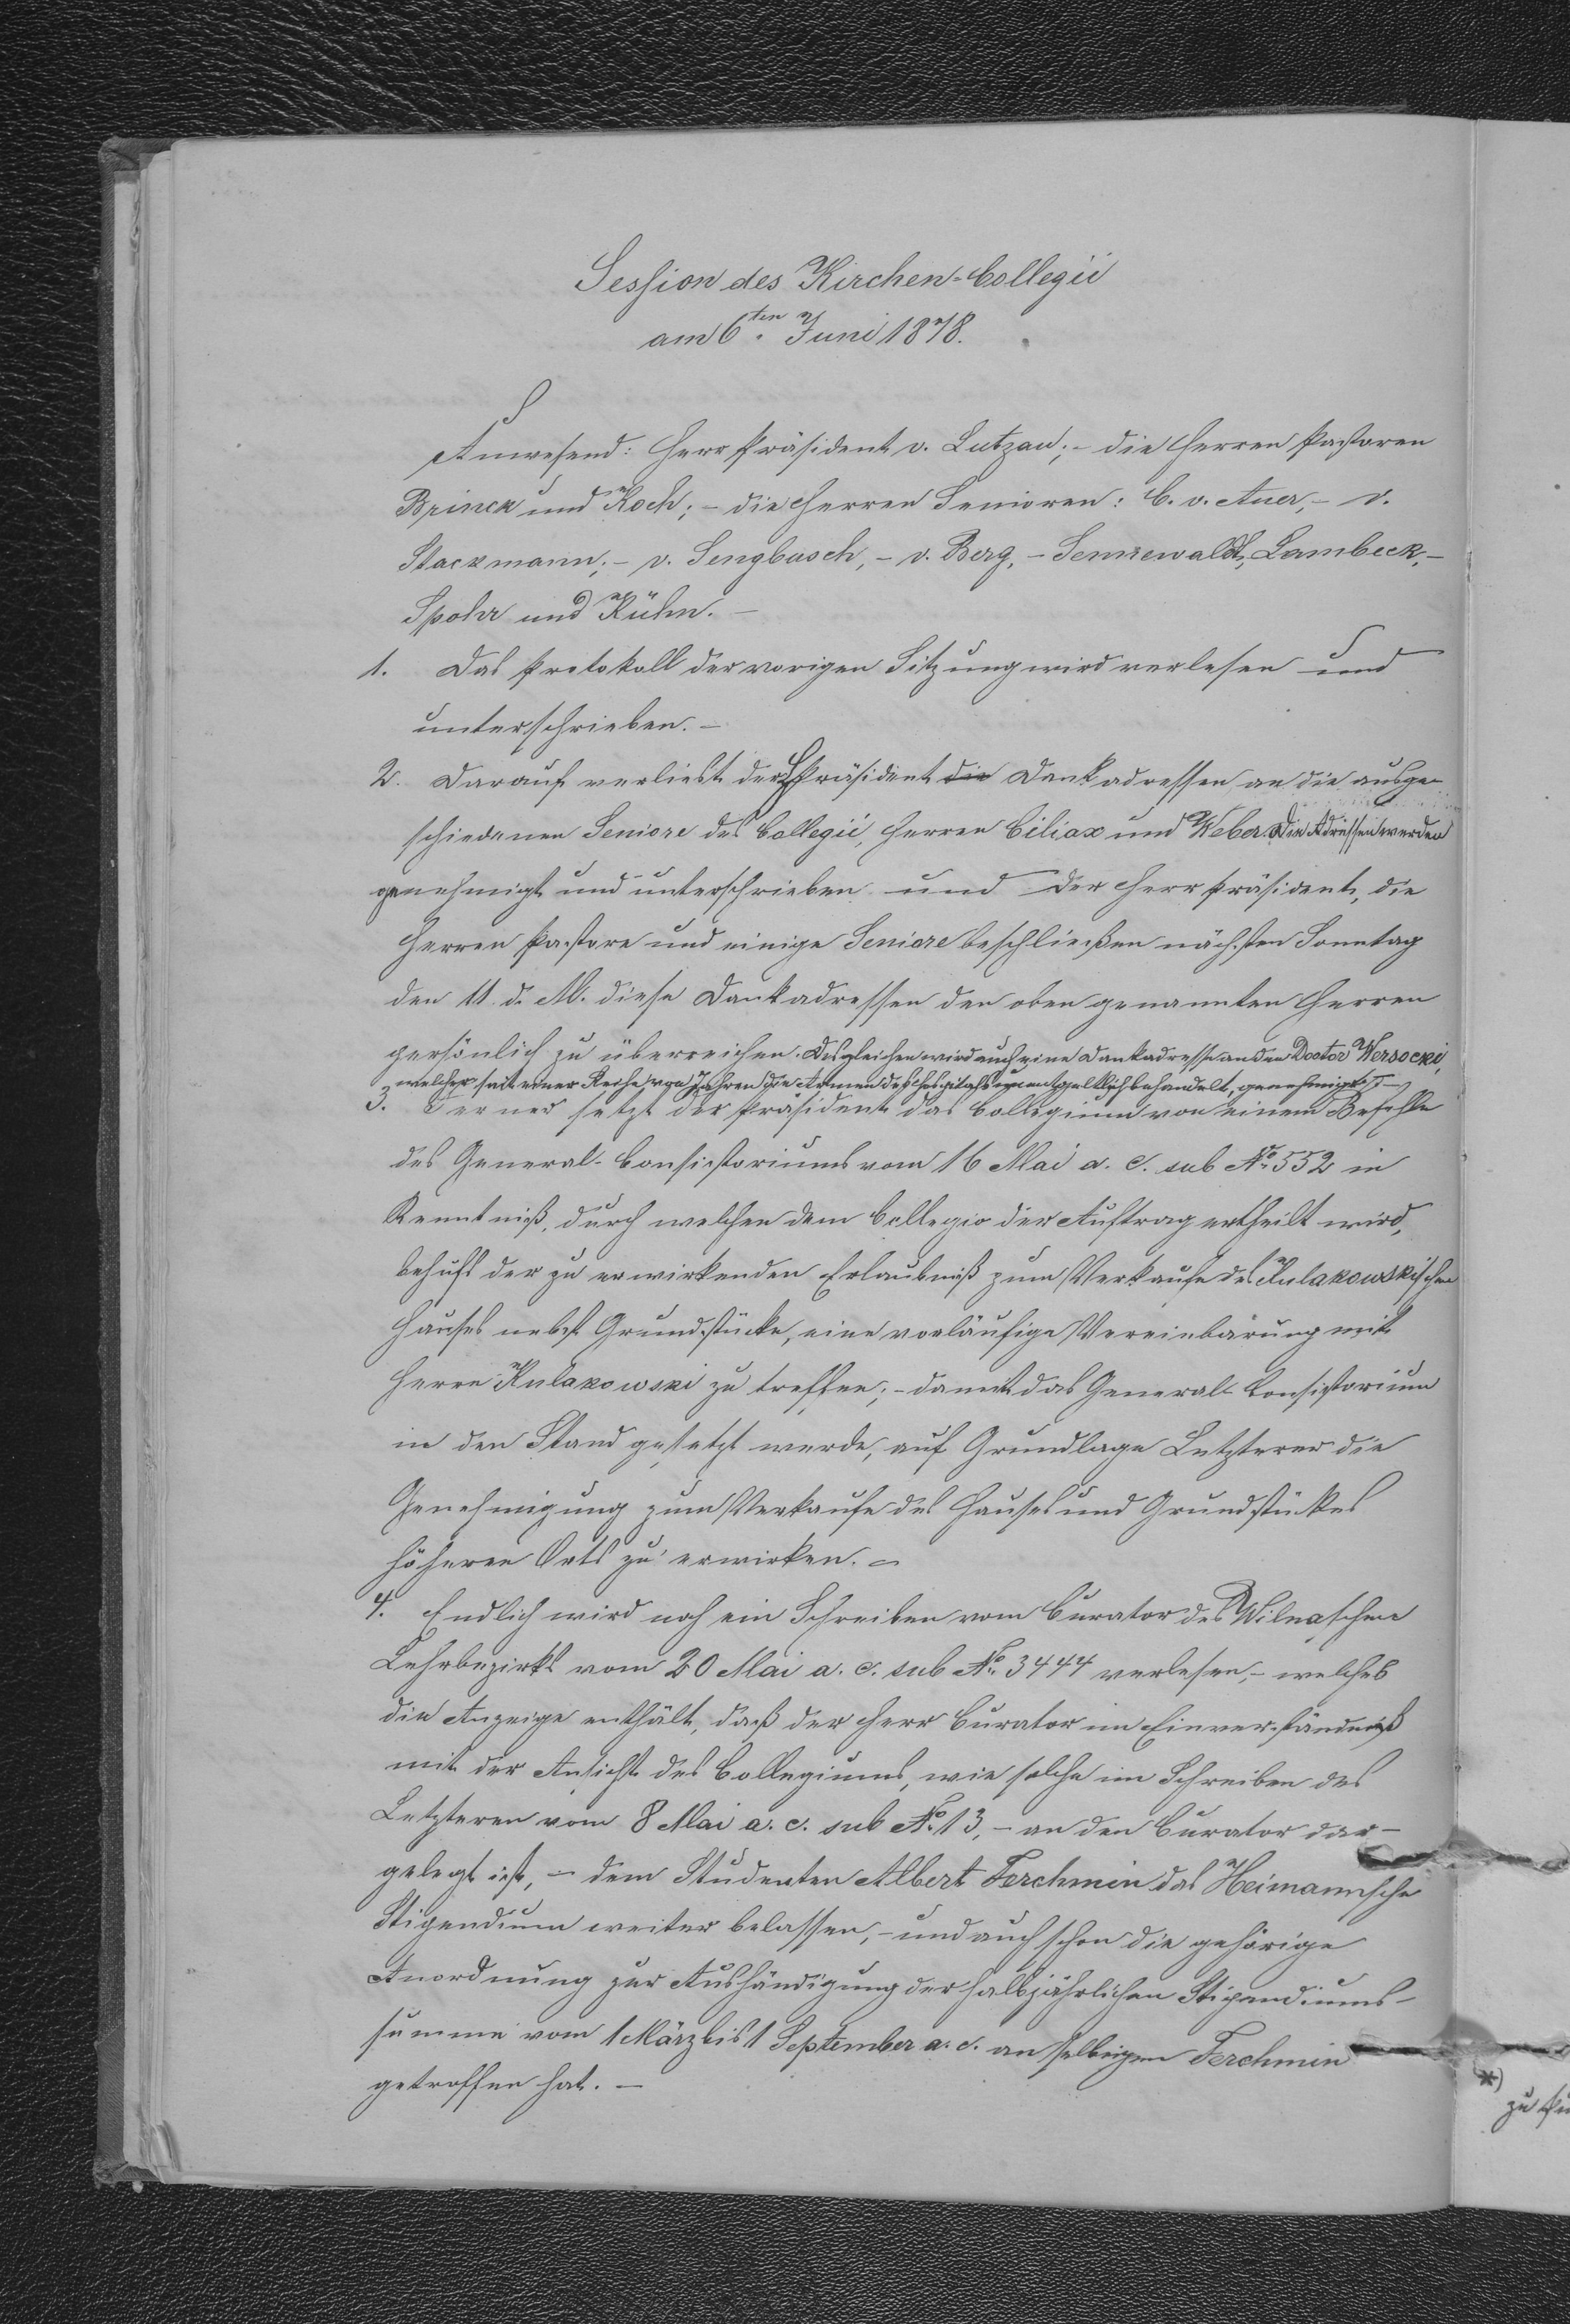 Session des Kirchen-Collegii
am 6.ten Juni 1878.
Anwesend: Herr Präsident v. Lutzau; – die Herren Pastoren
Brinck und Koch; – die Herren Senioren: C. v. Auer, – v.
Stackmann; – v. Sengbusch, – v. Berg, – Sennewaldt, Lambeck, –
Spohr und Kühn. –
1. Das Protokoll der vorigen Sitzung wird verlesen und
unterschrieben. –
2. Darauf verliest der H Präsident die Dankadressen an die ausge-
schiedenen Seniore des Collegii, Herren Ciliax und Weber. Die Adressen werden
genehmigt und unterschrieben und der Herr Präsident, die
Herren Pastore und einige Seniore beschließen nächsten Sonntag
den 11 d. M. diese Dankadressen den oben genannten Herren
persönlich zu überreichen. Desgleichen wird auch eine Dankadresse an den Doctor Wersocki,
welcher seit einer Reihe von Jahren die Armen des Hospitals unentgeltlich behandelt, genehmigt. –
3. Ferner setzt der Präsident das Collegium von einem Befehle
des General-Consistoriums vom 16 Mai a. c. sub No 552 in
Kenntniß, durch welchen dem Collegio der Auftrag ertheilt wird,
behufs der zu erwirkenden Erlaubniß zum Verkaufe des Kulakowskischen
Hauses nebst Grundstücke, eine vorläufige Vereinbarung mit
Herrn Kulakowski zu treffen; – damit das General-Consistorium
in den Stand gesetzt werde, auf Grundlage Letzterer die
Genehmigung zum Verkaufe des Hauses und Grundstückes
höheren Orts zu erwirken. –
4. Endlich wird noch ein Schreiben vom Curator des Wilnaschen
Lehrbezirks vom 20 Mai a. c. sub No 3444 verlesen, – welches
die Anzeige enthält, daß der Herr Curator im Einverständniß
mit der Ansicht des Collegiums, wie solche im Schreiben des
Letzteren vom 8 Mai a. c. sub No 13, – an den Curator dar-
gelegt ist, – dem Studenten Albert Ferchmin das Heimannsche
Stipendium weiter belassen, – und auch schon die gehörige
Anordnung zur Aushändigung der halbjährlichen Stipendiums-
summe vom 1 März bis 1 September a. c. an selbigen Ferchmin
getroffen hat. –
*)
zu